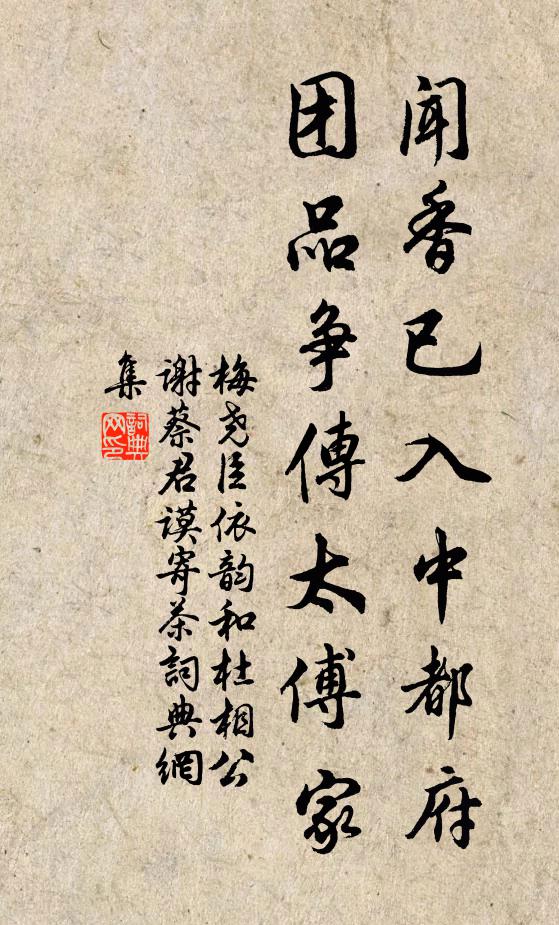 闻香已入中都府
团品争傳太傅家
梅尧臣依韵和杜相公
谢蔡君谟寄茶詞典網
集
詞典
网印